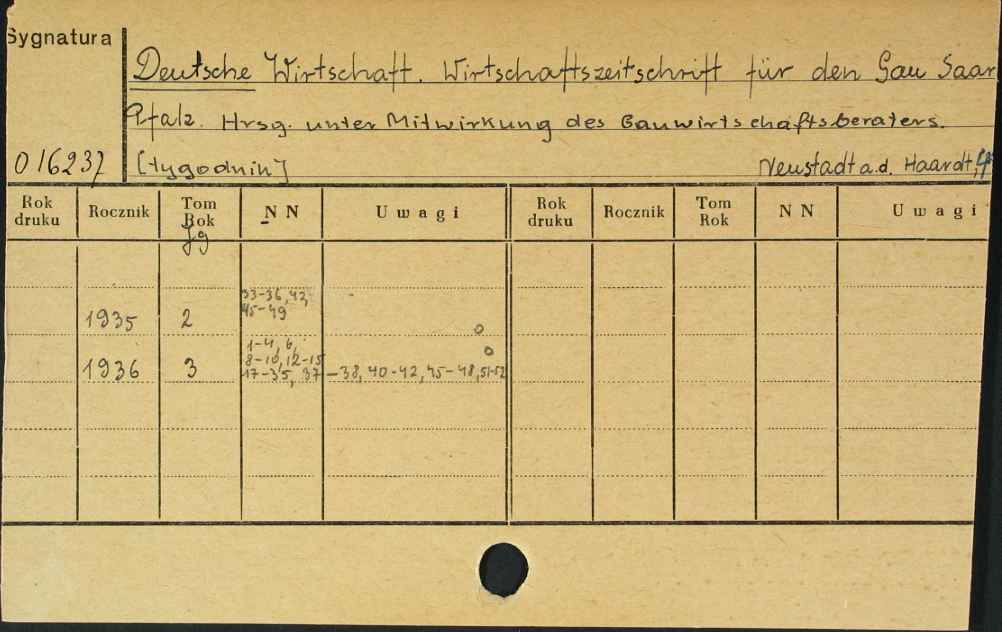 Sygnatura
Deutsche Wirtschaft. Wirtschaftszeitschrift für den Gau Saar
Pfalz. Hrsg. unter Mitwirkung des Gauwirtschaftsberaters.
016237 [tygodnik] Neustadt a.d. Haardt, 4°
Rok druku Rocznik Tom Rok N N Uwagi Rok druku Rocznik Tom Rok N N Uwagi
Jg
33-36, 42,
1935 2 45-49 o
1-4, 6, o
8-10, 12-15
1936 3 17-35, 37-38, 40-42, 45-48, 51-52